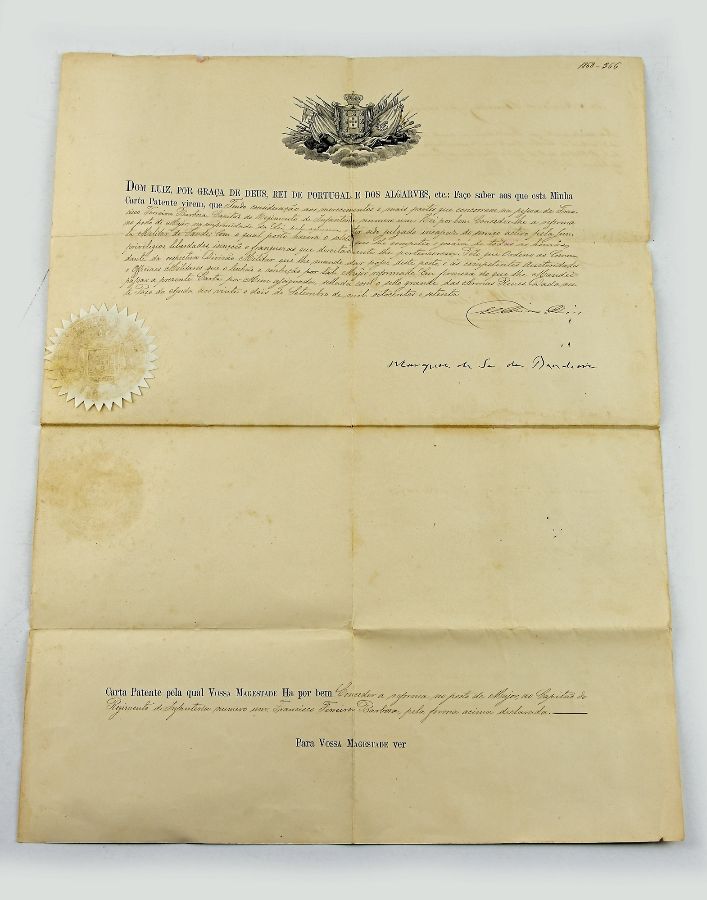 1868-366
DOM LUIZ, POR GRAÇA DE DEUS, REI DE PORTUGAL E DOS ALGARVES, etc.: Faço saber aos que esta Minha
Carta Patente virem, que Tendo consideração aos merecimentos e mais partes que concorrem na pessoa de Fran-
cisco Ferreira Barbosa Capitão do Regimento de Infanteria numero um: Hei por bem Conceder-lhe a reforma
no posto de Major na conformidade da Lei, por ter sido julgado incapaz de serviço activo pela Jun-
ta Militar de Saude: Com o qual posto haverá o soldo que lhe competir, e gosará de todas as honras,
privilegios, liberdades, isenções e franquezas que directamente lhe pertencerem. Pelo que Ordeno ao Comman-
dante da respectiva Divisão Militar que lhe mande dar posse deste posto e ás competentes Auctoridades
e Officiaes Militares que o tenham e conheçam por tal Major reformado. Em firmeza do que lhe Mandei
passar a presente Carta por Mim assignada, e sellada com o sello grande das Armas Reaes. Dada no
Paço da Ajuda aos vinte e dois de Setembro de mil oitocentos e setenta.
Marquez de Sá da Bandeira
Carta Patente pela qual VOSSA MAGESTADE Ha por bem Conceder a reforma no posto de Major, ao Capitão do
Regimento de Infanteria numero um, Francisco Ferreira Barbosa, pela forma acima declarada.
Para VOSSA MAGESTADE ver